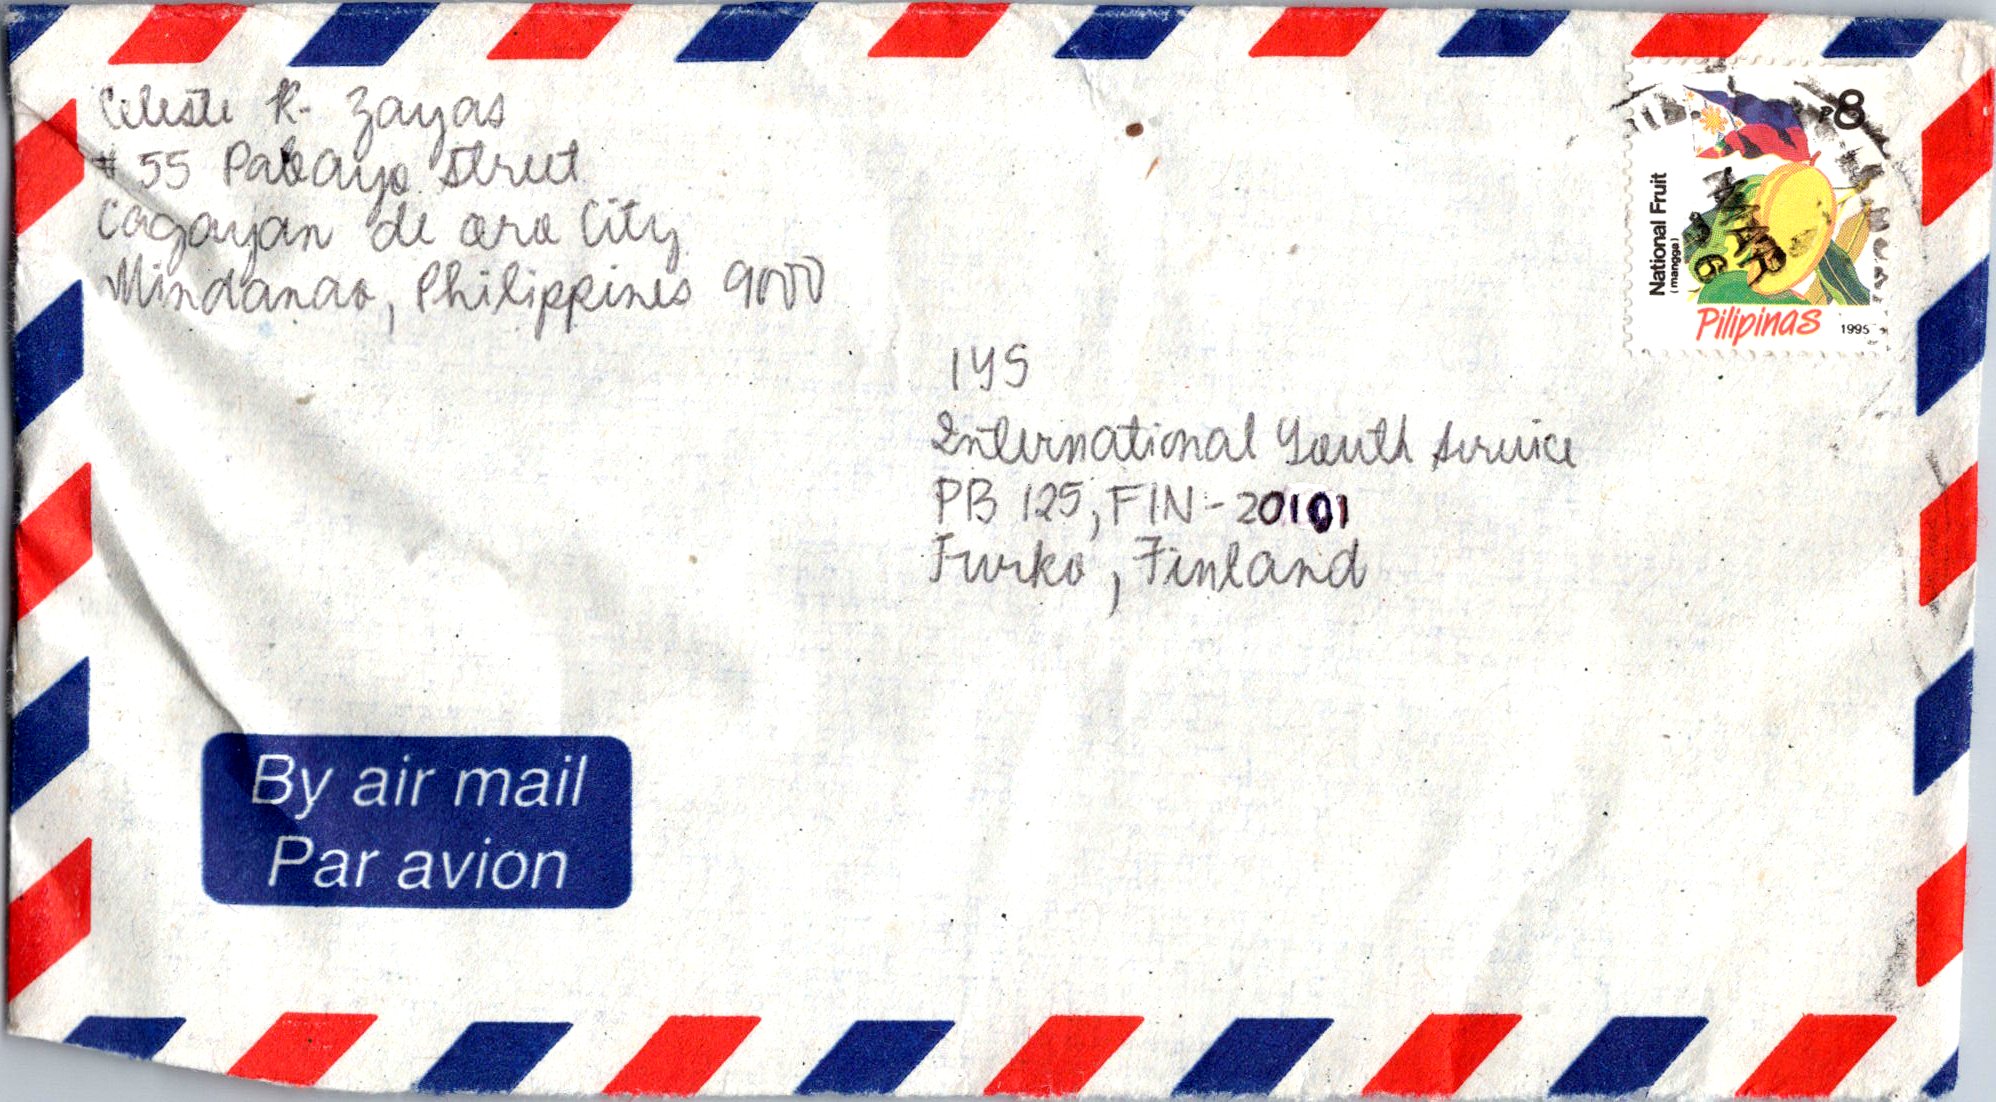 Celeste R. Zayas
# 55 Pabayo Street
Cagayan de oro City
Mindanao, Philippines 9000
₱8
National Fruit
(mangga)
MAR
Pilipinas 1995
IYS
International Youth Service
PB 125, FIN-20101
Turko, Finland
By air mail
Par avion